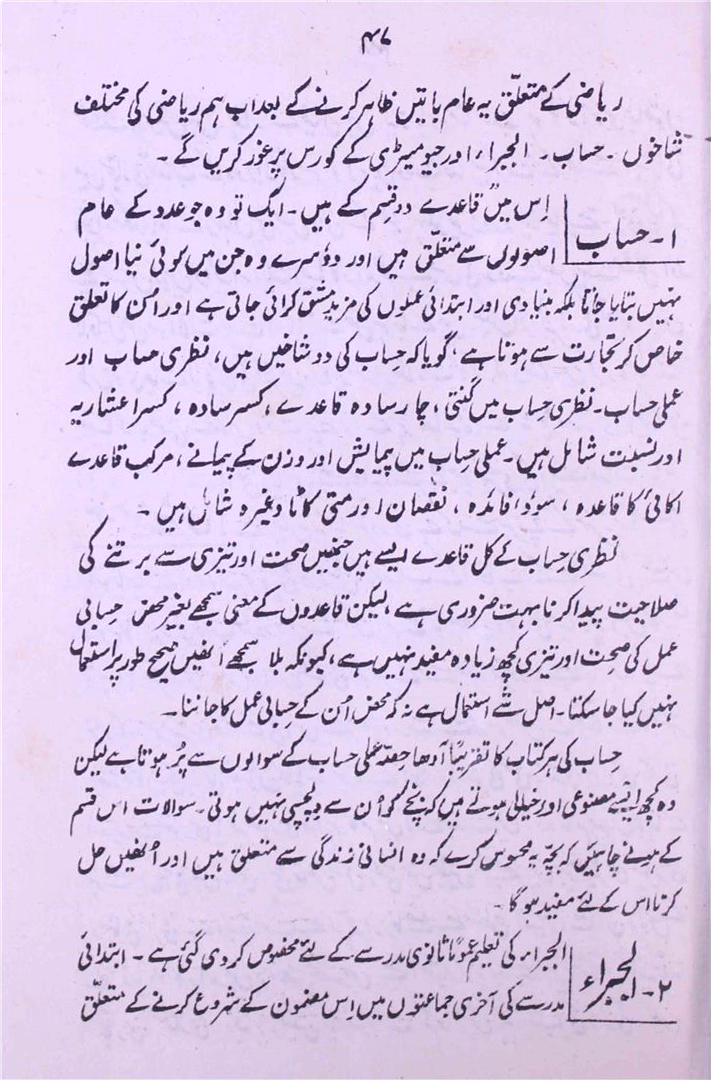 ۴۷
ریاضی کے متعلّق یہ عام باتیں ظاہر کرنے کے بعد اب ہم ریاضی کی مختلف
شاخوں ۔ حساب ۔ الجبراء، اور جیومیٹری کے کورس پر غور کریں گے ۔
۱۔ حساب
اِس میں قاعدے دو قسم کے ہیں۔ ایک تو وہ جو عدد کے عام
اصولوں سے متعلّق ہیں اور دوٗسرے وہ جن میں کوئی نیا اصول
نہیں بتایا جاتا بلکہ بنیادی اور ابتدائی عملوں کی مزید مشق کرائی جاتی ہے اور اس کا تعلق
خاص کر تجارت سے ہوتا ہے، گویا کہ حساب کی دو شاخیں ہیں، نظری حساب اور
عملی حساب۔ نظری حساب میں گنتی، چار سادہ قاعدے، کسر سادہ، کسر اعشاریہ
اور نسبت شامل ہیں۔ عملی حساب میں پیمایش اور وزن کے پیمانے، مرکب قاعدے
اکائی کا قاعدہ، سود، فائدہ، نقصان اور متی کاٹا وغیرہ شامل ہیں ۔
نظری حساب کے کل قاعدے ایسے ہیں جنھیں صحت اور تیزی سے برتنے کی
صلاحیت پیدا کرنا بہت ضروری ہے، لیکن قاعدوں کے معنی سمجھے بغیر محض حسابی
عمل کی صحت اور تیزی کچھ زیادہ مفید نہیں ہے، کیونکہ بلا سمجھے اُنھیں صحیح طور پر استعمال
نہیں کیا جا سکتا۔ اصل شے استعمال ہے نہ کہ محض اُن کے حسابی عمل کا جاننا۔
حساب کی ہر کتاب کا تقریباً آدھا حصّہ عملی حساب کے سوالوں سے پُر ہوتا ہے لیکن
وہ کچھ ایسے مصنوعی اور خیالی ہوتے ہیں کہ بچّے کو اُن سے دلچسپی نہیں ہوتی۔ سوالات اس قسم
کے ہونے چاہئیں کہ بچّہ یہ محسوس کرے کہ وہ انسانی زندگی سے متعلق ہیں اور اُنھیں حل
کرنا اس کے لئے مفید ہوگا ۔
۲۔ الجبراء
الجبراء کی تعلیم عموماً ثانوی مدرسے کے لئے مخصوص کر دی گئی ہے ۔ ابتدائی
مدرسے کی آخری جماعتوں میں اِس مضمون کے شروع کرنے کے متعلّق